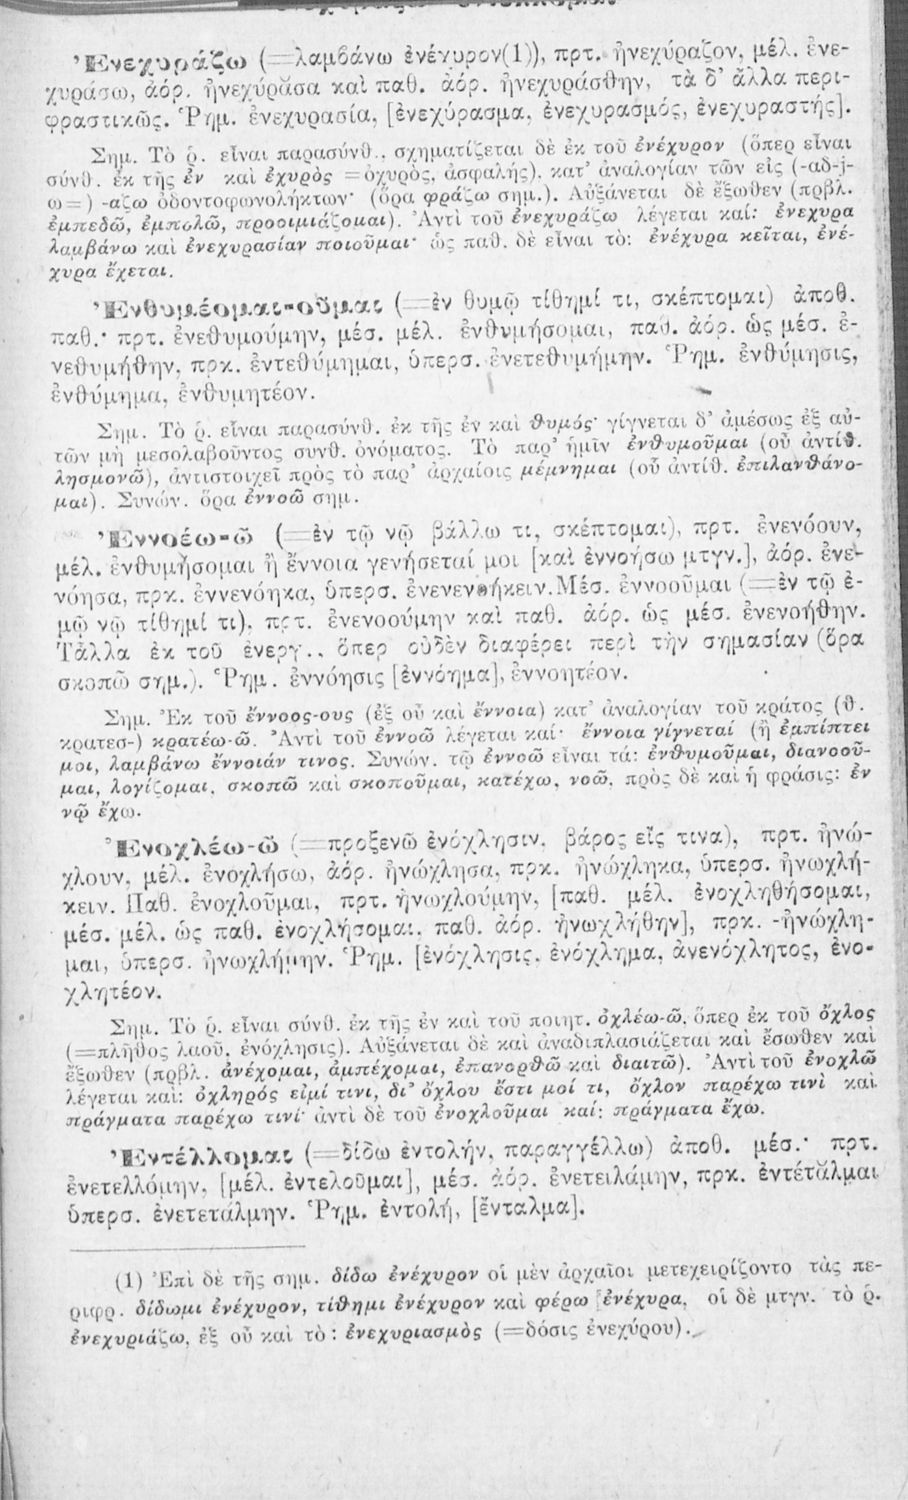 Ἐνεχυράζω (=λαμβάνω ἐνέχυρον(1)), πρτ. ἠνεχύραζον, μέλ. ἐνε-
χυράσω, ἀόρ. ἠνεχύρᾰσα καὶ παθ. ἀόρ. ἠνεχυράσθην, τὰ δ' ἄλλα περι-
φραστικῶς. Ῥημ. ἐνεχυρασία, [ἐνεχύρασμα, ἐνεχυρασμός, ἐνεχυραστής].
Σημ. Τὸ ῥ. εἶναι παρασύνθ., σχηματίζεται δὲ ἐκ τοῦ ἐνέχυρον (ὅπερ εἶναι
σύνθ. ἐκ τῆς ἐν καὶ ἐχυρὸς =ὀχυρός, ἀσφαλής), κατ' ἀναλογίαν τῶν εἰς (-αδ-j-
ω=) -αζω ὀδοντοφωνολήκτων· (ὅρα φράζω σημ.). Αὐξάνεται δὲ ἔξωθεν (πρβλ.
ἐμπεδῶ, ἐμπολῶ, προοιμιάζομαι). Ἀντὶ τοῦ ἐνεχυράζω λέγεται καί: ἐνέχυρα
λαμβάνω καὶ ἐνεχυρασίαν ποιοῦμαι· ὡς παθ. δὲ εἶναι τὸ: ἐνέχυρα κεῖται, ἐνέ-
χυρα ἔχεται.
Ἐνθυμέομαι-οῦμαι (=ἐν θυμῷ τίθημί τι, σκέπτομαι) ἀποθ.
παθ.· πρτ. ἐνεθυμούμην, μέσ. μέλ. ἐνθυμήσομαι, παθ. ἀόρ. ὡς μέσ. ἐ-
νεθυμήθην, πρκ. ἐντεθύμημαι, ὑπερσ. ἐνετεθυμήμην. Ῥημ. ἐνθύμησις,
ἐνθύμημα, ἐνθυμητέον.
Σημ. Τὸ ῥ. εἶναι παρασύνθ. ἐκ τῆς ἐν καὶ θυμός· γίγνεται δ' ἀμέσως ἐξ αὐ-
τῶν μὴ μεσολαβοῦντος συνθ. ὀνόματος. Τὸ παρ' ἡμῖν ἐνθυμοῦμαι (οὗ ἀντίθ.
λησμονῶ), ἀντιστοιχεῖ πρὸς τὸ παρ' ἀρχαίοις μέμνημαι (οὗ ἀντίθ. ἐπιλανθάνο-
μαι). Συνών. ὅρα ἐννοῶ σημ.
Ἐννοέω-ῶ (=ἐν τῷ νῷ βάλλω τι, σκέπτομαι), πρτ. ἐνενόουν,
μέλ. ἐνθυμήσομαι ἢ ἔννοια γενήσεταί μοι [καὶ ἐννοήσω μτγν.], ἀόρ. ἐνε-
νόησα, πρκ. ἐννενόηκα, ὑπερσ. ἐνενενοήκειν. Μέσ. ἐννοοῦμαι (=ἐν τῷ ἐ-
μῷ νῷ τίθημί τι), πρτ. ἐνενοούμην καὶ παθ. ἀόρ. ὡς μέσ. ἐνενοήθην.
Τἄλλα ἐκ τοῦ ἐνεργ., ὅπερ οὐδὲν διαφέρει περὶ τὴν σημασίαν (ὅρα
σκοπῶ σημ.). Ῥημ. ἐννόησις [ἐννόημα], ἐννοητέον.
Σημ. Ἐκ τοῦ ἔννοος-ους (ἐξ οὗ καὶ ἔννοια) κατ' ἀναλογίαν τοῦ κράτος (θ.
κρατεσ-) κρατέω-ῶ. Ἀντὶ τοῦ ἐννοῶ λέγεται καί· ἔννοια γίγνεταί (ἢ ἐμπίπτει
μοι, λαμβάνω ἔννοιάν τινος. Συνών. τῷ ἐννοῶ εἶναι τά: ἐνθυμοῦμαι, διανοοῦ-
μαι, λογίζομαι, σκοπῶ καὶ σκοποῦμαι, κατέχω, νοῶ, πρὸς δὲ καὶ ἡ φράσις: ἐν
νῷ ἔχω.
Ἐνοχλέω-ῶ (=προξενῶ ἐνόχλησιν, βάρος εἴς τινα), πρτ. ἠνώ-
χλουν, μέλ. ἐνοχλήσω, ἀόρ. ἠνώχλησα, πρκ. ἠνώχληκα, ὑπερσ. ἠνωχλή-
κειν. Παθ. ἐνοχλοῦμαι, πρτ. ἠνωχλούμην, [παθ. μέλ. ἐνοχληθήσομαι,
μέσ. μέλ. ὡς παθ. ἐνοχλήσομαι, παθ. ἀόρ. ἠνωχλήθην], πρκ. -ἠνώχλη-
μαι, ὑπερσ. ἠνωχλήμην. Ῥημ. [ἐνόχλησις, ἐνόχλημα, ἀνενόχλητος, ἐνο-
χλητέον.
Σημ. Τὸ ῥ. εἶναι σύνθ. ἐκ τῆς ἐν καὶ τοῦ ποιητ. ὀχλέω-ῶ, ὅπερ ἐκ τοῦ ὄχλος
(=πλῆθος λαοῦ, ἐνόχλησις). Αὐξάνεται δὲ καὶ ἀναδιπλασιάζεται καὶ ἔσωθεν καὶ
ἔξωθεν (πρβλ. ἀνέχομαι, ἀμπέχομαι, ἐπανορθῶ καὶ διαιτῶ). Ἀντὶ τοῦ ἐνοχλῶ
λέγεται καί: ὀχληρός εἰμί τινι, δι' ὄχλου ἔστι μοί τι, ὄχλον παρέχω τινὶ καὶ
πράγματα παρέχω τινί· ἀντὶ δὲ τοῦ ἐνοχλοῦμαι καί: πράγματα ἔχω.
Ἐντέλλομαι (=δίδω ἐντολήν, παραγγέλλω) ἀποθ. μέσ.· πρτ.
ἐνετελλόμην, [μέλ. ἐντελοῦμαι], μέσ. ἀόρ. ἐνετειλάμην, πρκ. ἐντέτᾰλμαι
ὑπερσ. ἐνετετάλμην. Ῥημ. ἐντολή, [ἔνταλμα].
(1) Ἐπὶ δὲ τῆς σημ. δίδω ἐνέχυρον οἱ μὲν ἀρχαῖοι μετεχειρίζοντο τὰς πε-
ριφρ. δίδωμι ἐνέχυρον, τίθημι ἐνέχυρον καὶ φέρω ἐνέχυρα, οἱ δὲ μτγν. τὸ ῥ.
ἐνεχυριάζω, ἐξ οὗ καὶ τὸ: ἐνεχυριασμὸς (=δόσις ἐνεχύρου).